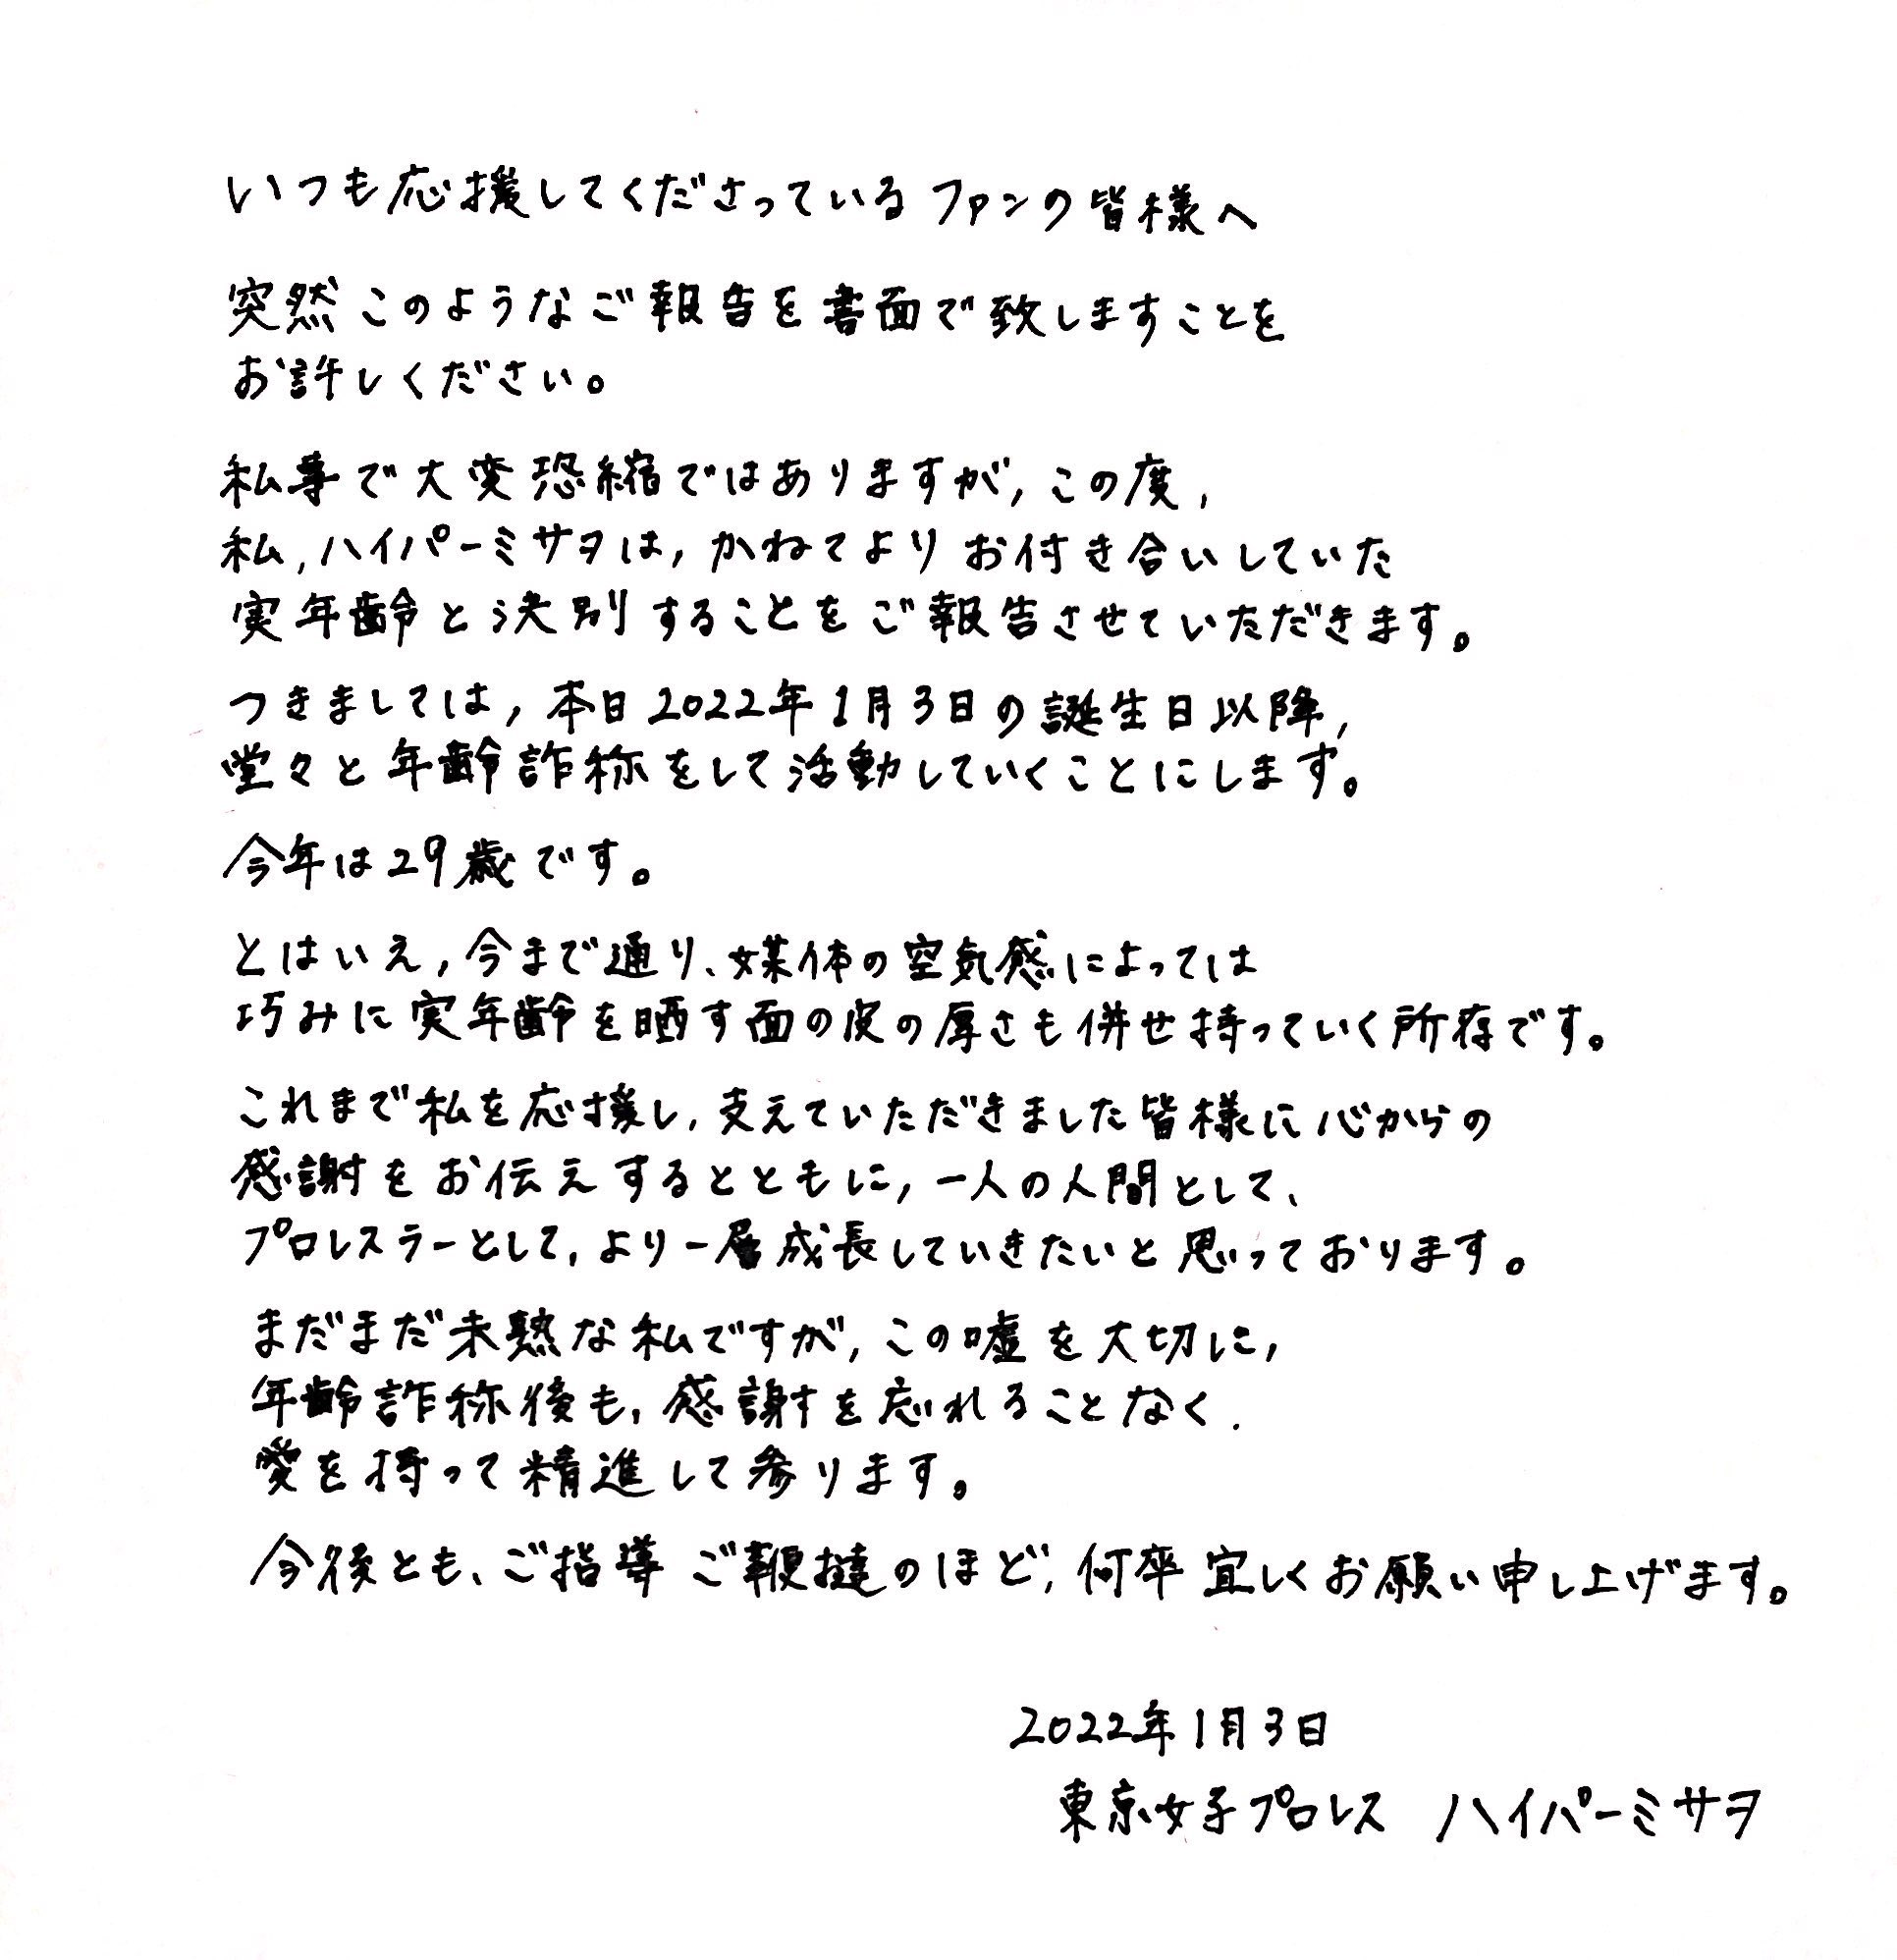 いつも応援してくださっているファンの皆様へ
突然このようなご報告を書面で致しますことを
お許しください。
私事で大変恐縮ではありますが,この度,
私,ハイパーミサヲは,かねてよりお付き合いしていた
実年齢と決別することをご報告させていただきます。
つきましては,本日2022年1月3日の誕生日以降,
堂々と年齢詐称をして活動していくことにします。
今年は29歳です。
とはいえ,今まで通り、媒体の空気感によっては
巧みに実年齢を晒す面の皮の厚さも併せ持っていく所存です。
これまで私を応援し,支えていただきました皆様に心からの
感謝をお伝えするとともに,一人の人間として、
プロレスラーとして,より一層成長していきたいと思っております。
まだまだ未熟な私ですが,この嘘を大切に,
年齢詐称後も,感謝を忘れることなく.
愛を持って精進して参ります。
今後とも、ご指導ご鞭撻のほど,何卒宜しくお願い申し上げます。
2022年1月3日
東京女子プロレス ハイパーミサヲ